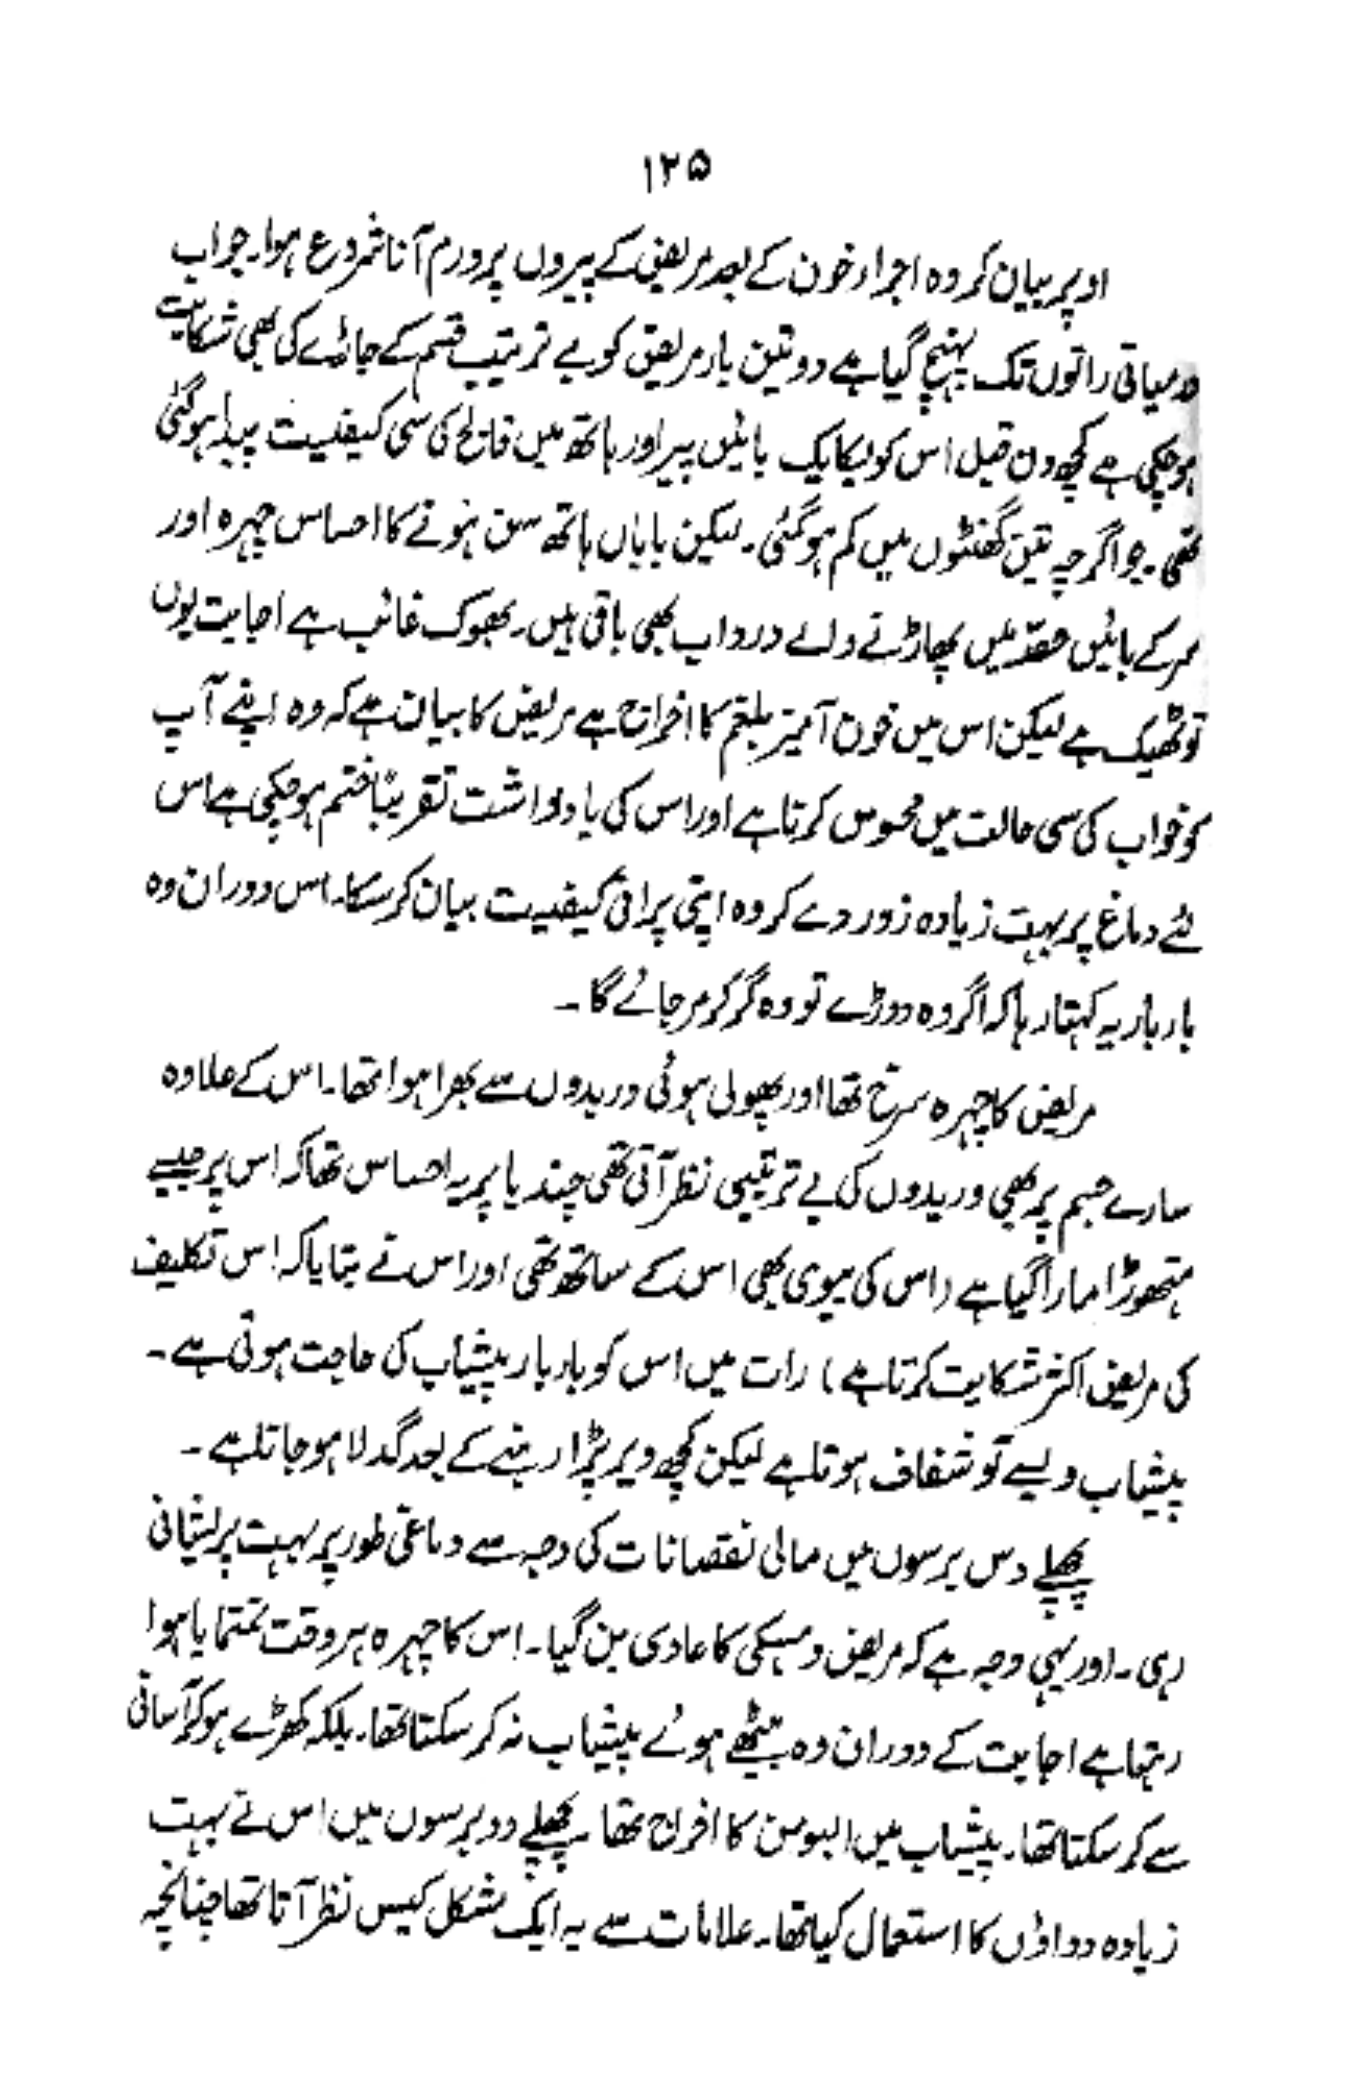 ۱۲۵
اوپر بیان کردہ اجراء خون کے بعد مریض کے پیروں پر ورم آنا شروع ہوا۔ جو اب
درمیانی راتوں تک پہنچ گیا ہے دو تین بار مریض کو بے ترتیب قسم کے جاڑے کی بھی شکایت
ہو چکی ہے کچھ دن قبل اس کو یکایک بائیں پیر اور ہاتھ میں فالج کی سی کیفیت پیدا ہو گئی
تھی۔ جو اگرچہ تین گھنٹوں میں کم ہو گئی۔ لیکن بایاں ہاتھ سن ہونے کا احساس چہرہ اور
سر کے بائیں حصّہ میں پھاڑنے والے درد اب بھی باقی ہیں۔ بھوک غائب ہے اجابت یوں
تو ٹھیک ہے لیکن اس میں خون آمیز بلغم کا اخراج ہے مریض کا بیان ہے کہ وہ اپنے آپ
کو خواب کی سی حالت میں محسوس کرتا ہے اور اس کی یادداشت تقریباً ختم ہو چکی ہے اس
لئے دماغ پر بہت زیادہ زور دے کر وہ اپنی پرانی کیفیت بیان کر سکا۔ اس دوران وہ
بار بار یہ کہتا رہا کہ اگر وہ دوڑے تو وہ گر کر مر جائے گا۔
مریض کا چہرہ سرخ تھا اور پھولی ہوئی وریدوں سے بھرا ہوا تھا۔ اس کے علاوہ
سارے جسم پر بھی وریدوں کی بے ترتیبی نظر آتی تھی چندیا پر یہ احساس تھا کہ اس پر جیسے
ہتھوڑا مارا گیا ہے (اس کی بیوی بھی اس کے ساتھ تھی اور اس نے بتایا کہ اس تکلیف
کی مریض اکثر شکایت کرتا ہے) رات میں اس کو بار بار پیشاب کی حاجت ہوتی ہے۔
پیشاب ویسے تو شفاف ہوتا ہے لیکن کچھ دیر پڑا رہنے کے بعد گدلا ہو جاتا ہے۔
پچھلے دس برسوں میں مالی نقصانات کی وجہ سے دماغی طور پر بہت پریشانی
رہی۔ اور یہی وجہ ہے کہ مریض وہسکی کا عادی بن گیا۔ اس کا چہرہ ہر وقت تمتمایا ہوا
رہتا ہے اجابت کے دوران وہ بیٹھے ہوئے پیشاب نہ کر سکتا تھا۔ بلکہ کھڑے ہو کر آسانی
سے کر سکتا تھا۔ پیشاب میں البومن کا اخراج تھا پچھلے دو برسوں میں اس نے بہت
زیادہ دواؤں کا استعمال کیا تھا۔ علامات سے یہ ایک مشکل کیس نظر آتا تھا چنانچہ